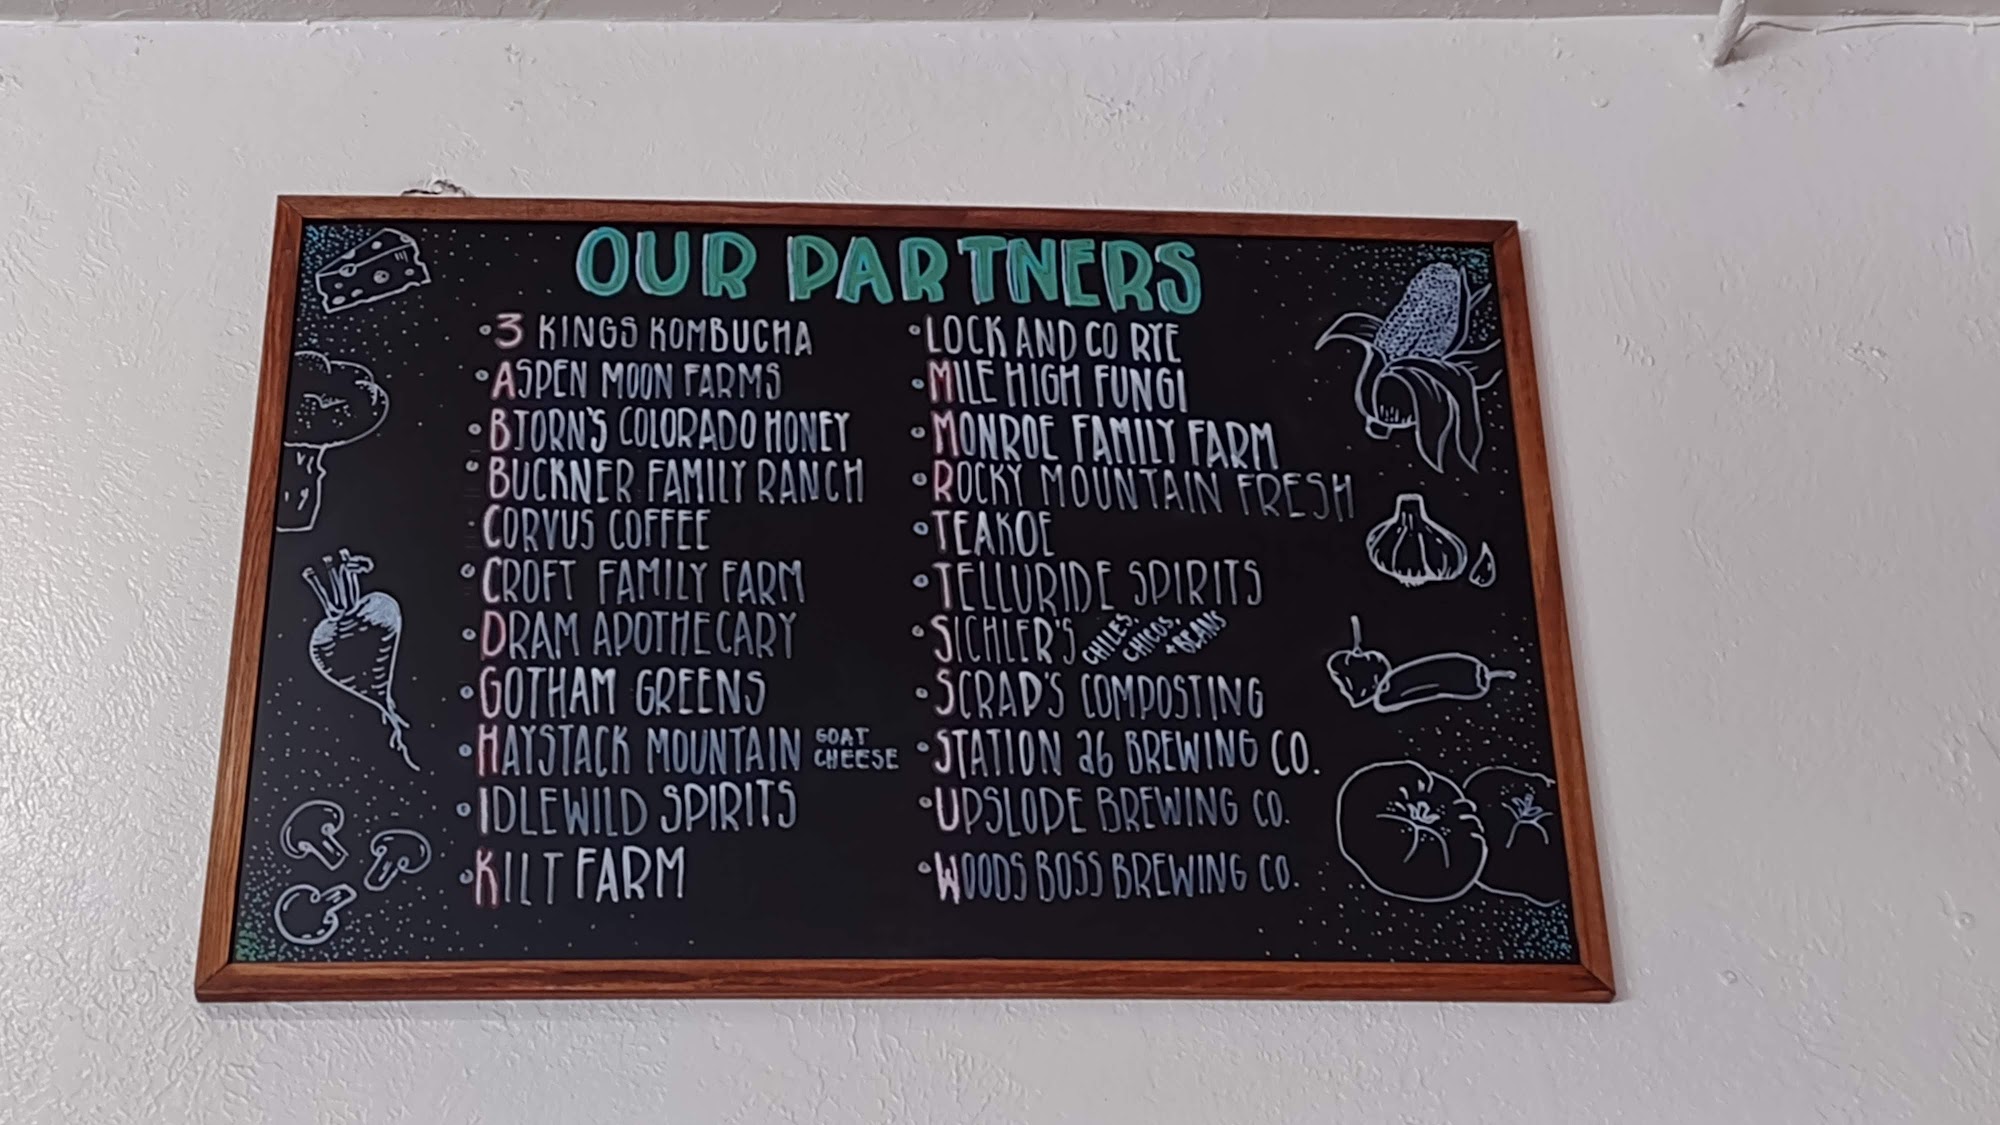 OUR PARTNERS
• 3 KINGS KOMBUCHA
• ASPEN MOON FARMS
• BJORN'S COLORADO HONEY
• BUCKNER FAMILY RANCH
• CORVUS COFFEE
• CROFT FAMILY FARM
• DRAM APOTHECARY
• GOTHAM GREENS
• HAYSTACK MOUNTAIN GOAT CHEESE
• IDLEWILD SPIRITS
• KILT FARM
• LOCK AND CO RYE
• MILE HIGH FUNGI
• MONROE FAMILY FARM
• ROCKY MOUNTAIN FRESH
• TEAKOE
• TELLURIDE SPIRITS
• SICHLER'S CHILES, CHICOS, + BEANS
• SCRAP'S COMPOSTING
• STATION 26 BREWING CO.
• UPSLOPE BREWING CO.
• WOODS BOSS BREWING CO.